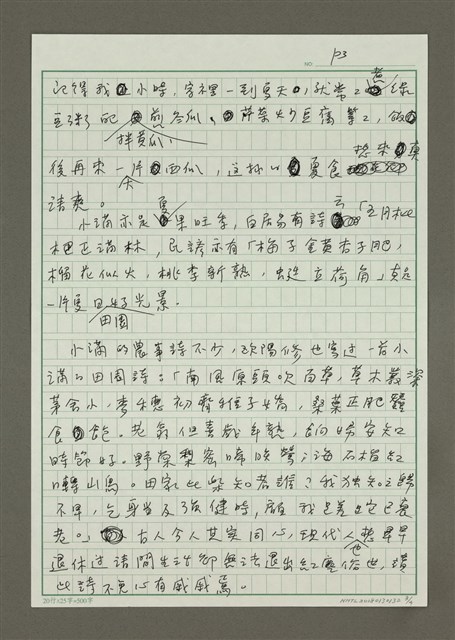 NO. P3
記得我小時,家裡一到夏天,就常常煮綠
豆粥配煎苦瓜、拌黃瓜、芹菜炒豆腐等等,飯
後再來一片大西瓜,這樣的夏食想來真
清爽。
小滿亦是夏果旺季,白居易有詩云「五月枇
杷正滿林,民諺亦有「梅子金黃杏子肥,
榴花似火,桃李新熟,蜓立荷角」真是
一片夏日田園光景。
小滿的農事詩不少,歐陽修也寫過一首小
滿的田園詩:「南風原頭吹百草,草木叢深
茅舍小,麥穗初齊稚子嬌,桑葉正肥蠶
食飽。老翁但喜歲年熟,餉婦安知
時節好。野棠梨密啼晚鶯,海石榴紅
囀山鳥。田家此樂知者誰?我獨知之歸
不早,乞身當及強健時,顧我蹉跎已衰
老。」古人今人其實同心,現代人想早早
退休過清閒生活卻無法退出紅塵俗世,讀
此詩不免心有戚戚焉。
20行×25字=500字